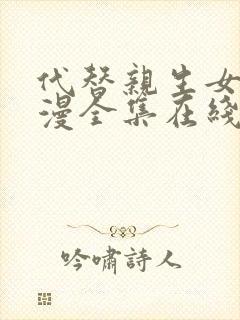 代替親生女
漫全集在綫
吟嘯詩人